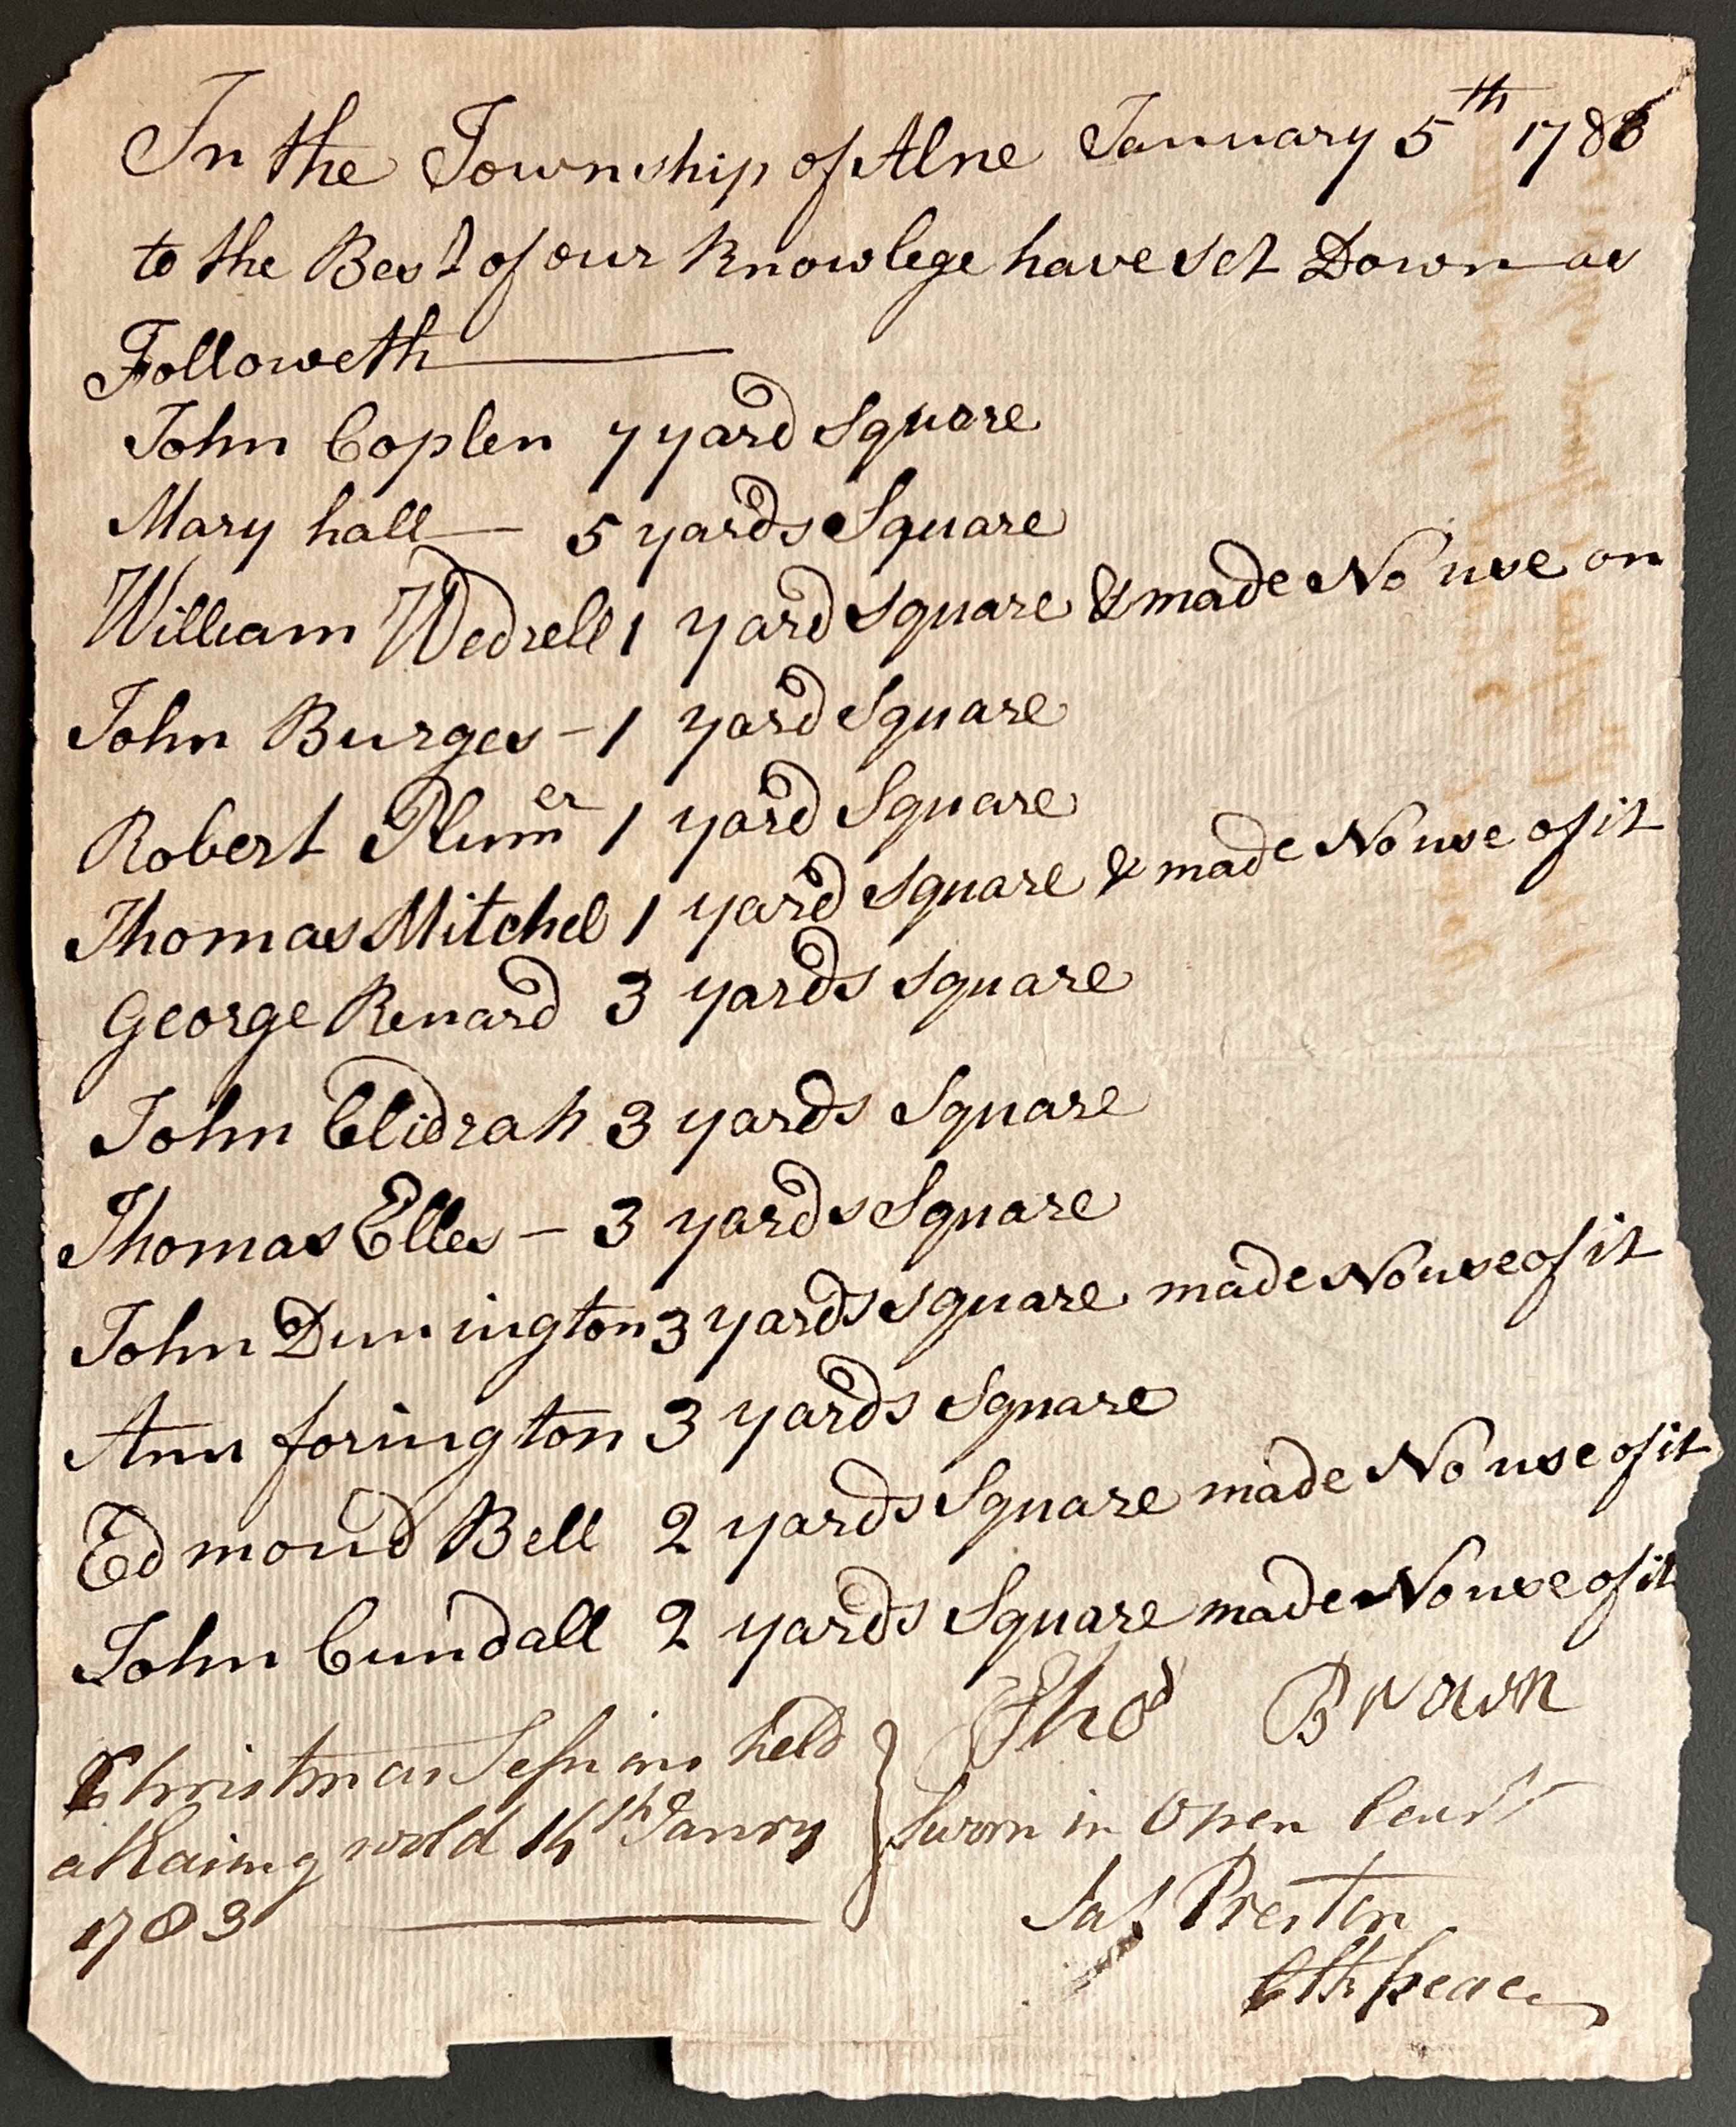 In the Township of Alne January 5th 1783
to the Best of our Knowlege have set Down as
Followeth
John Coplen 7 yard Square
Mary hall — 5 yards Square
William Wedrell 1 yard square & made No use on
John Burges - 1 yard Square
Robert Plumer 1 yard Square
Thomas Mitchel 1 yard square & made No use of it
George Renard 3 yards square
John Clidrah 3 yards Square
Thomas Elles - 3 yards Square
John Dunington 3 yards square made No use of it
Ann forington 3 yards Square
Edmond Bell 2 yards Square made No use of it
John Cundall 2 yards Square made No use of it
Thos Brown
Christmas Sessions held
at Kaing wold 14th Janry
1783
Sworn in Open Court
Jas Preston
Clk peace